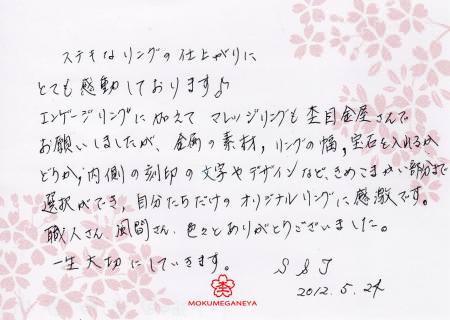 ステキなリングの仕上がりに
とても感動しております♪
エンゲージリングに加えて マレッジリングも杢目金屋さんで
お願いしましたが、金属の素材，リングの幅，宝石を入れるか
どうか，内側の刻印の文字やデザインなど、きめこまかい部分まで
選択ができ，自分たちだけのオリジナルリングに感激です。
職人さん，風間さん，色々とありがとうございました。
一生大切にしていきます。
S & J
2012.5.24
MOKUMEGANEYA